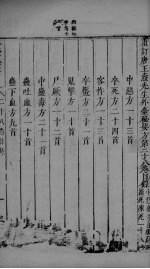 重訂唐王燾先生外臺秘要方第二十八卷目錄
中惡方一十三首
卒死方二十四首
客忤方一十三首
卒魘方二十一首
鬼擊方一十首
尸厥方一十二首
中蠱毒方二十一首
蠱吐血方一十首
蠱下血方九首